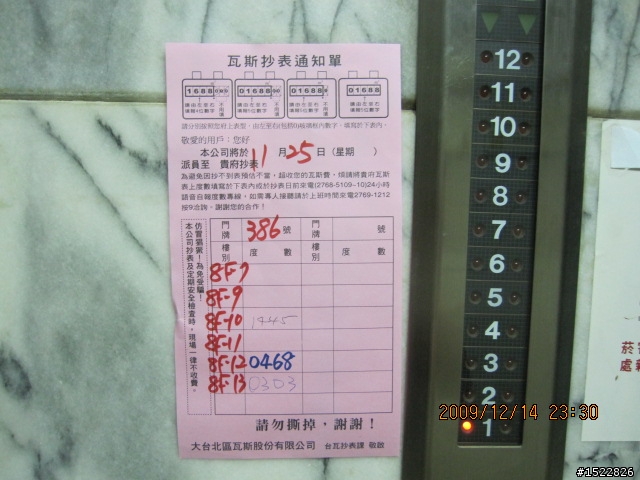 瓦斯抄表通知單
01688 01688 01688 01688
敬愛的用戶：您好
本公司將於11月25日（星期　）
派員至 貴府抄表
為避免因抄不到表預估不當，超收您的瓦斯費，煩請將貴府瓦斯
表上度數填寫於下表內或於抄表日前來電(2768-5109~10)24小時
語音自報度數專線，如需專人接聽請於上班時間來電2769-1212
按9洽詢，謝謝您的合作！
門牌 386 號 門牌 號
樓別 度數 樓別 度數
8F-7
8F-9
8F-10 1445
8F-11
8F-12 0468
8F-13 0303
仿冒猖獗！為免受騙！
本公司抄表及定期安全檢查時，現場一律不收費。
請勿撕掉，謝謝！
大台北區瓦斯股份有限公司 台瓦抄表課 敬啟
12
11
10
9
8
7
6
5
4
3
2
1
2009/12/14 23:30
#1522826